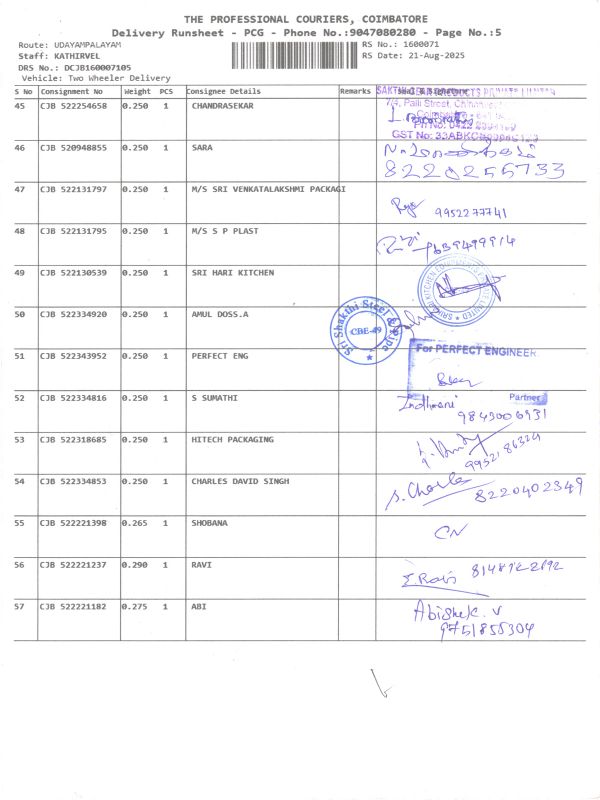 THE PROFESSIONAL COURIERS, COIMBATORE
Delivery Runsheet - PCG - Phone No.:9047080280 - Page No.:5
Route: UDAYAMPALAYAM
RS No.: 1600071
Staff: KATHIRVEL
RS Date: 21-Aug-2025
DRS No.: DCJB160007105
Vehicle: Two Wheeler Delivery
S No Consignment No Weight PCS Consignee Details Remarks
45 CJB 522254658 0.250 1 CHANDRASEKAR
7/4, Palli Street,
46 CJB 520948855 0.250 1 SARA
8220255733
47 CJB 522131797 0.250 1 M/S SRI VENKATALAKSHMI PACKAGI
9952277741
48 CJB 522131795 0.250 1 M/S S P PLAST
9639499914
49 CJB 522130539 0.250 1 SRI HARI KITCHEN
50 CJB 522334920 0.250 1 AMUL DOSS.A
Sri Shakthi Steel & Pipe
CBE-49
51 CJB 522343952 0.250 1 PERFECT ENG
For PERFECT ENGINEER
Partner
52 CJB 522334816 0.250 1 S SUMATHI
Indhrani
9843006931
53 CJB 522318685 0.250 1 HITECH PACKAGING
9952186324
54 CJB 522334853 0.250 1 CHARLES DAVID SINGH
S. Charles
8220402349
55 CJB 522221398 0.265 1 SHOBANA
CN
56 CJB 522221237 0.290 1 RAVI
E.Ravi
57 CJB 522221182 0.275 1 ABI
Abishek. V
9751855304